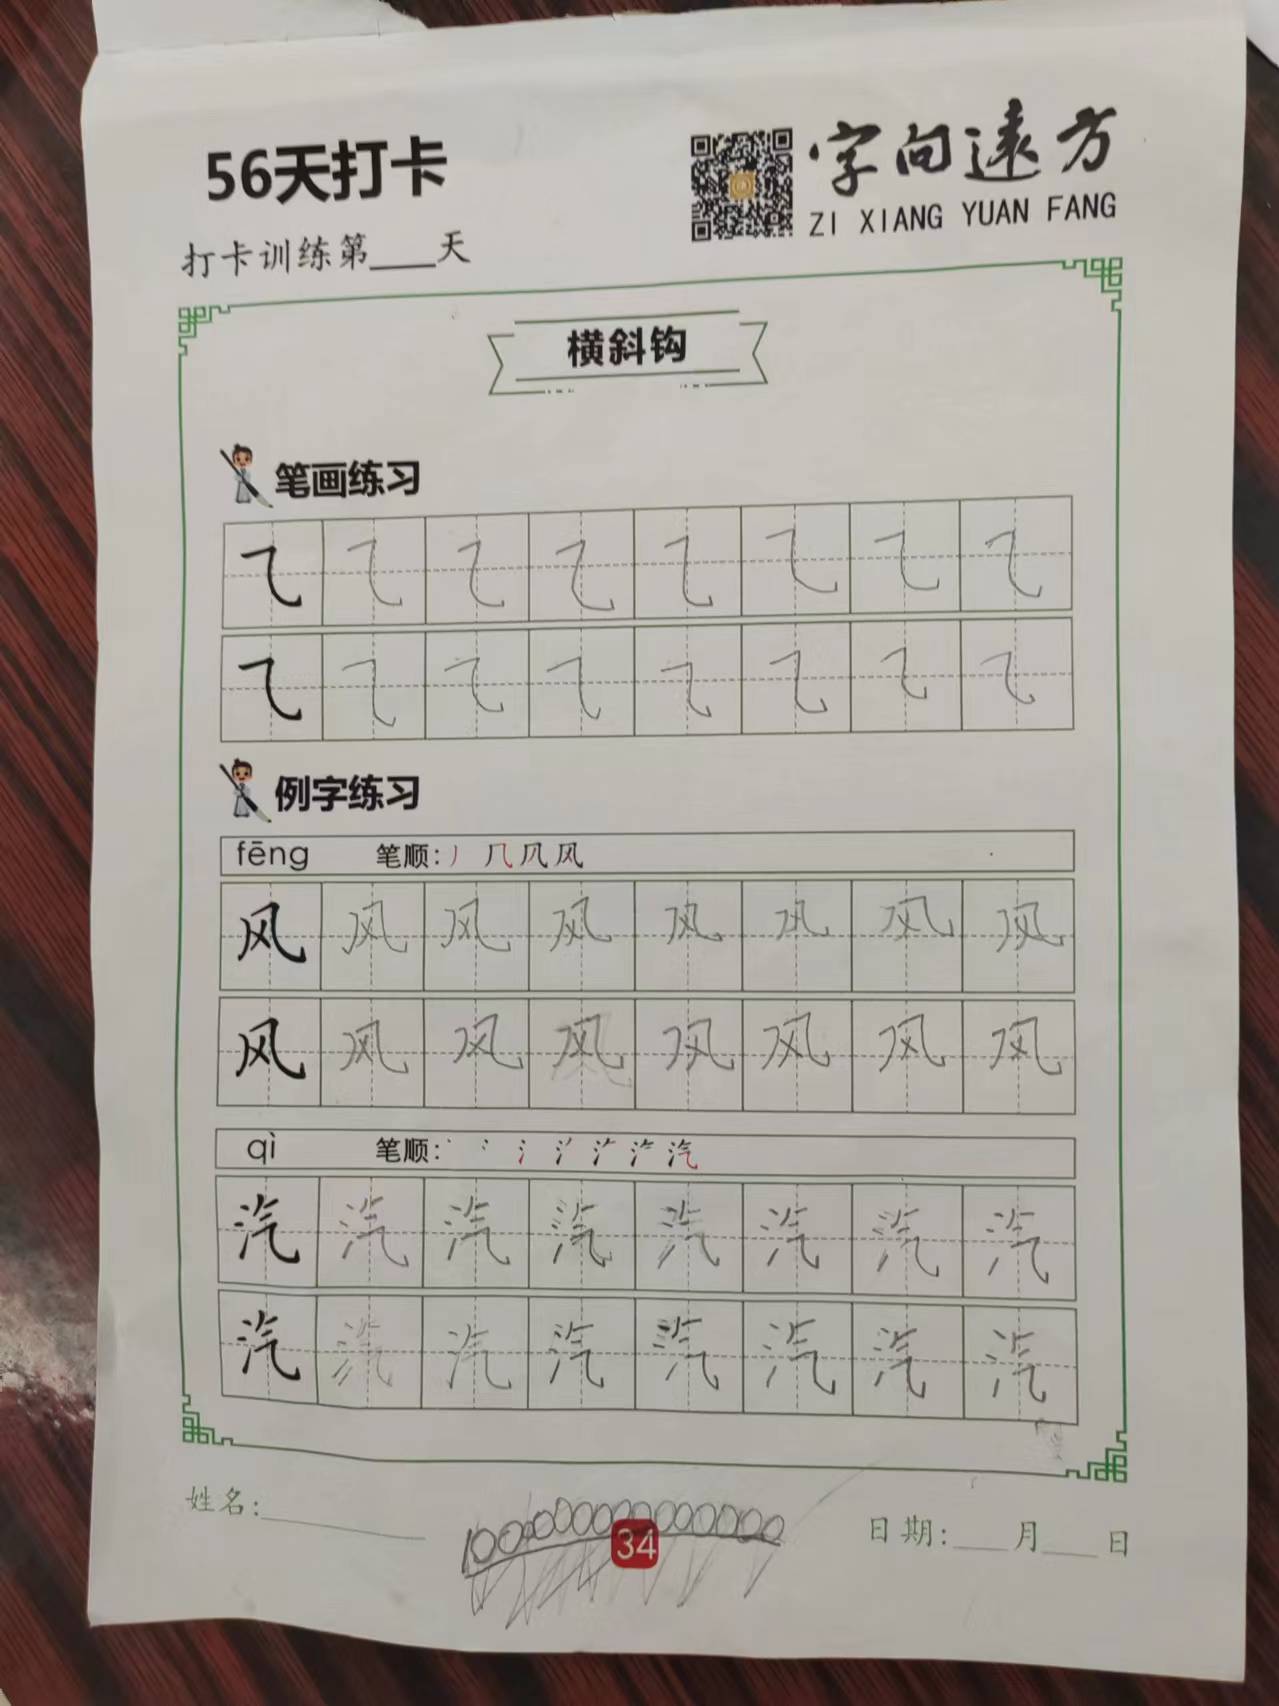 56天打卡
字向遠方
ZI XIANG YUAN FANG
打卡训练第____天
横斜钩
笔画练习
㇈ ㇈ ㇈ ㇈ ㇈ ㇈ ㇈ ㇈
㇈ ㇈ ㇈ ㇈ ㇈ ㇈ ㇈ ㇈
例字练习
fēng 笔顺: 丿 几 凤 风
风 风 风 风 风 风 风 风
风 风 风 风 风 风 风 风
qì 笔顺: 汽
汽 汽 汽 汽 汽 汽 汽 汽
汽 汽 汽 汽 汽 汽 汽 汽
姓名:
34
日期:____月____日